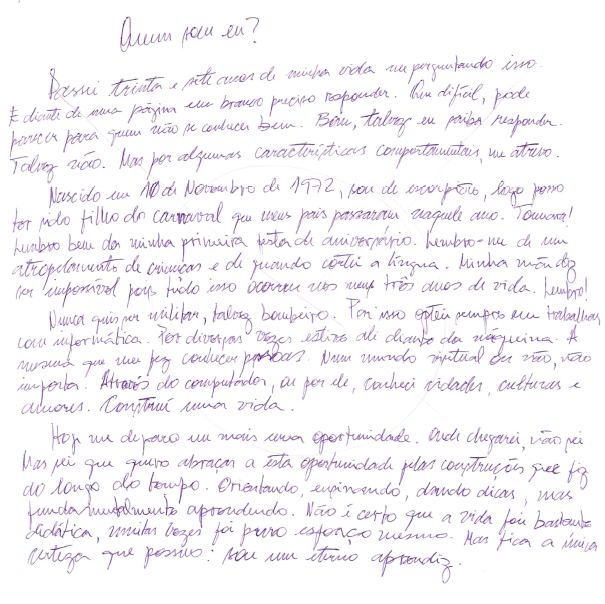 Quem sou eu?
Passei trinta e sete anos de minha vida me perguntando isso.
E diante de uma página em branco preciso responder. Que difícil, pode
parecer para quem não se conhece bem. Bom, talvez eu saiba responder.
Talvez não. Mas por algumas características comportamentais, me atrevo.
Nascido em 10 de Novembro de 1972, sou de escorpião, logo posso
ter sido filho do carnaval que meus pais passaram naquele ano. Tomara!
Lembro bem da minha primeira festa de aniversário. Lembro-me de um
atropelamento de crianças e de quando cortei a língua. Minha mãe diz
ser impossível pois tudo isso ocorreu nos meus três anos de vida. Lembro!
Nunca quis ser militar, talvez bombeiro. Por isso optei sempre em trabalhar
com informática. Por diversas vezes estive ali diante da máquina. A
mesma que me fez conhecer pessoas. Num mundo virtual ou não, não
importa. Através do computador, ou por ele, conheci cidades, culturas e
amores. Construí uma vida.
Hoje me deparo em mais uma oportunidade. Onde chegarei, não sei
Mas sei que quero abraçar a esta oportunidade pelas construções que fiz
do longo do tempo. Orientando, ensinando, dando dicas, mas
fundamentalmente aprendendo. Não é certo que a vida foi bastante
didática, muitas vezes foi puro esforço mesmo. Mas fica a única
certeza que possuo: sou um eterno aprendiz.